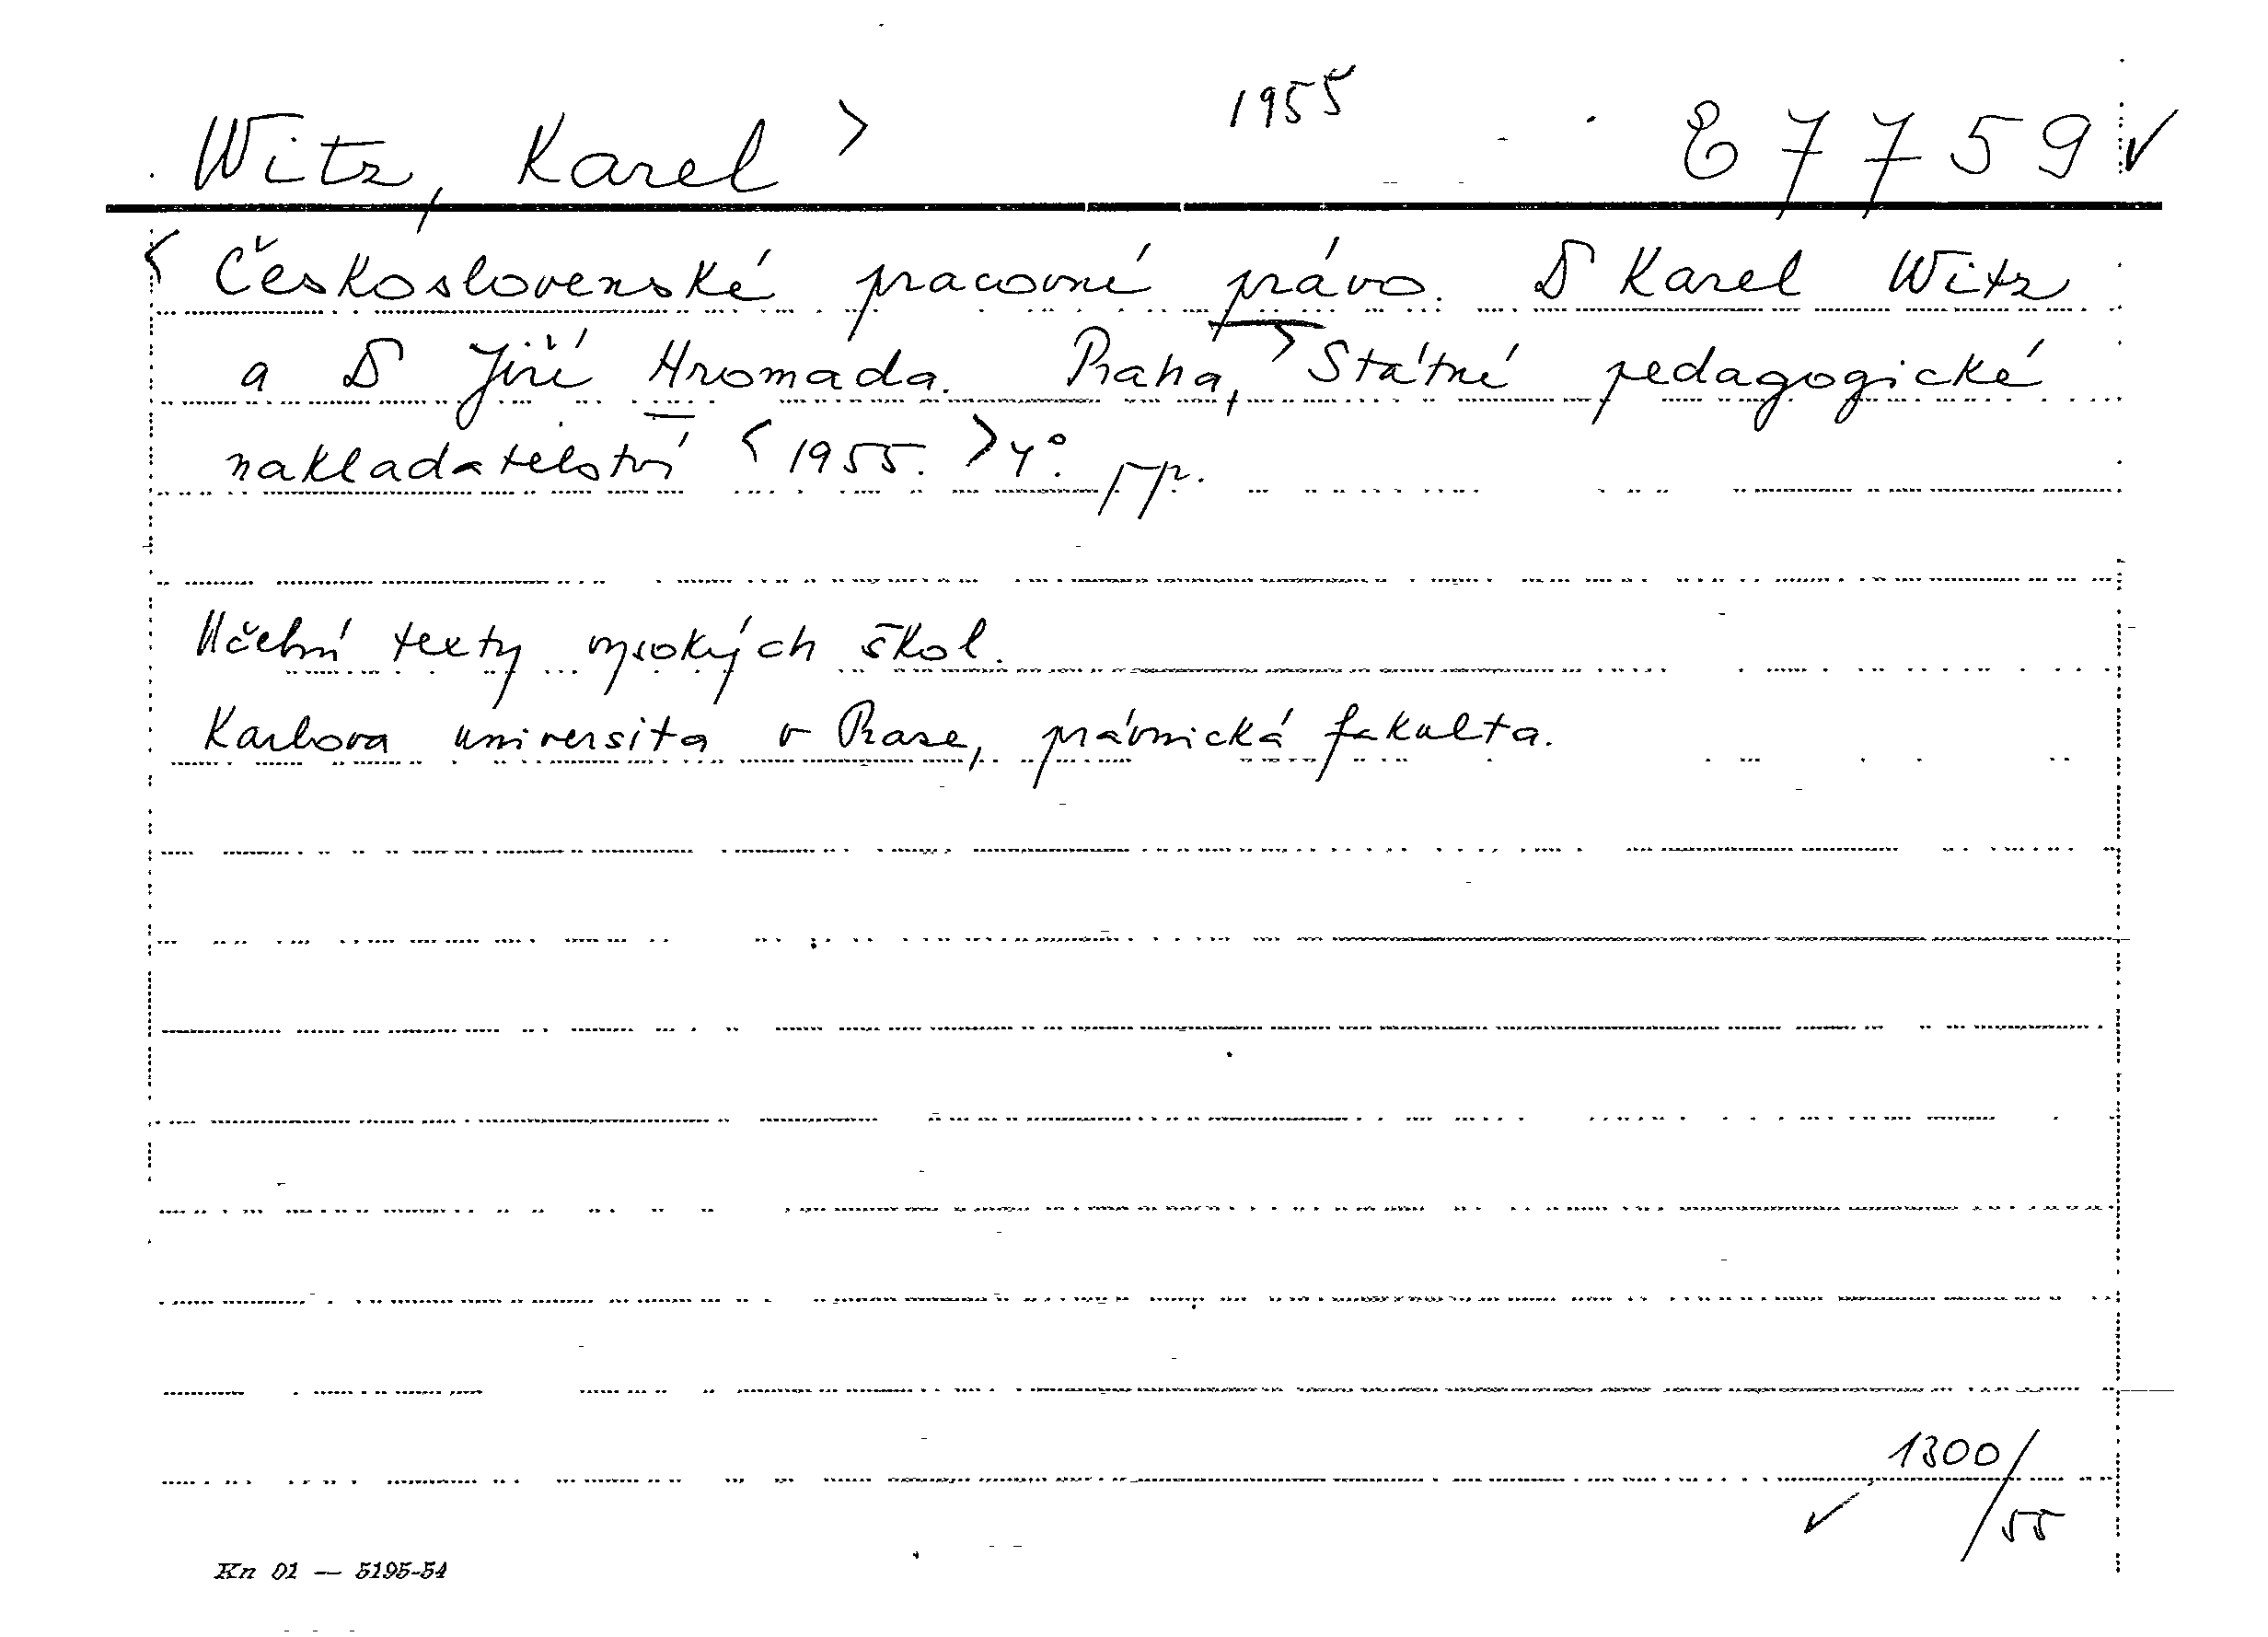 Witz, Karel > 1955 E 7759 ✓
< Československé pracovné právo. D Karel Witz
a D Jiří Hromada. Praha, > Státné pedagogické
nakladatelství < 1955. > 4°.
Učební texty vysokých škol.
Karlova universita v Praze, právnická fakulta.
1300/55
✓
Kn 01 — 5195-54